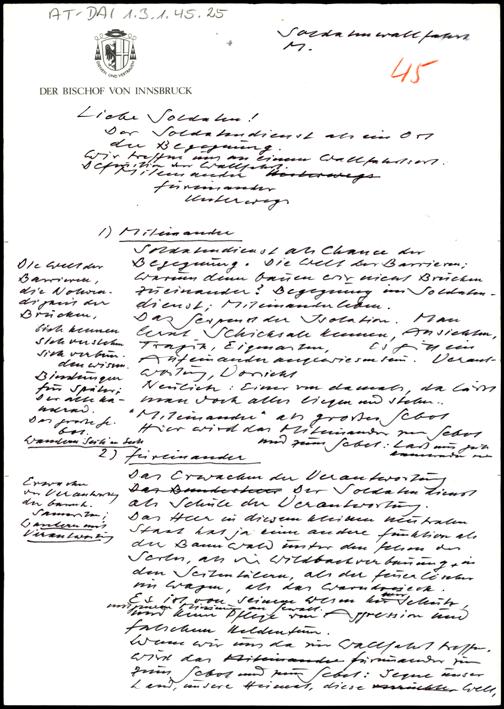 AT-DAI 1.3.1.45.25
Soldatenwallfahrt
M.
45
DIENEN UND VERTRAUEN
DER BISCHOF VON INNSBRUCK
Liebe Soldaten!
Der Soldatendienst als ein Ort
der Begegnung.
Wir treffen uns an einem Wallfahrtsort.
Definition der Wallfahrt.
Miteinander unterwegs
füreinander
unterwegs
1) Miteinander
Soldatendienst als Chance der
Begegnung. Die Welt der Barrieren;
warum denn bauen wir nicht Brücken
zueinander? Begegnung im Soldaten-
dienst; Miteinanderleben.
Das Gespenst der Isolation. Man
lernt Schicksale kennen, Ansichten,
Tragik, Eigenarten, Es ist ein
Aufeinanderangewiesensein. Verant-
wortung, Vorsicht
Neulich: Einer von damals, da lässt
man doch alles liegen und stehn.
"Miteinander" als grosses Gebot
Hier wird das Miteinander zum Gebot
und zum Gebet: Lass uns
Die Welt der
Barrieren,
die Notwen-
digkeit der
Brücken,
Sich kennen
Sich verstehn
Sich verbun-
den wissen.
Bindungen
für später;
Der alte Ka-
merad.
Das grosse Ge-
bot.
2) füreinander
Das Erwachen der Verantwortung
Das Bundesheer Der Soldatendienst
als Schule der Verantwortung.
Das Heer in diesem kleinen neutralen
Staat hat ja eine andere Funktion als
der Bannwald unter den Felsen des
Berges, als die Wildbachverbauung in
den Seitentälern, als der Feuerlösch-
wagen, als das Warndreieck.
Es ist von seinem Wesen her Schutz,
und keine Pflege von Aggression und
falschem Heldentum.
Wenn wir uns da zur Wallfahrt treffen,
wird das Miteinander füreinander zum
zum Gebot und zum Gebet: Segne unser
Land, unsere Heimat, diese Welt,
Erwachen
der Verantwortung
der barmh.
Samariter;
Wandern mit
Verantwortung